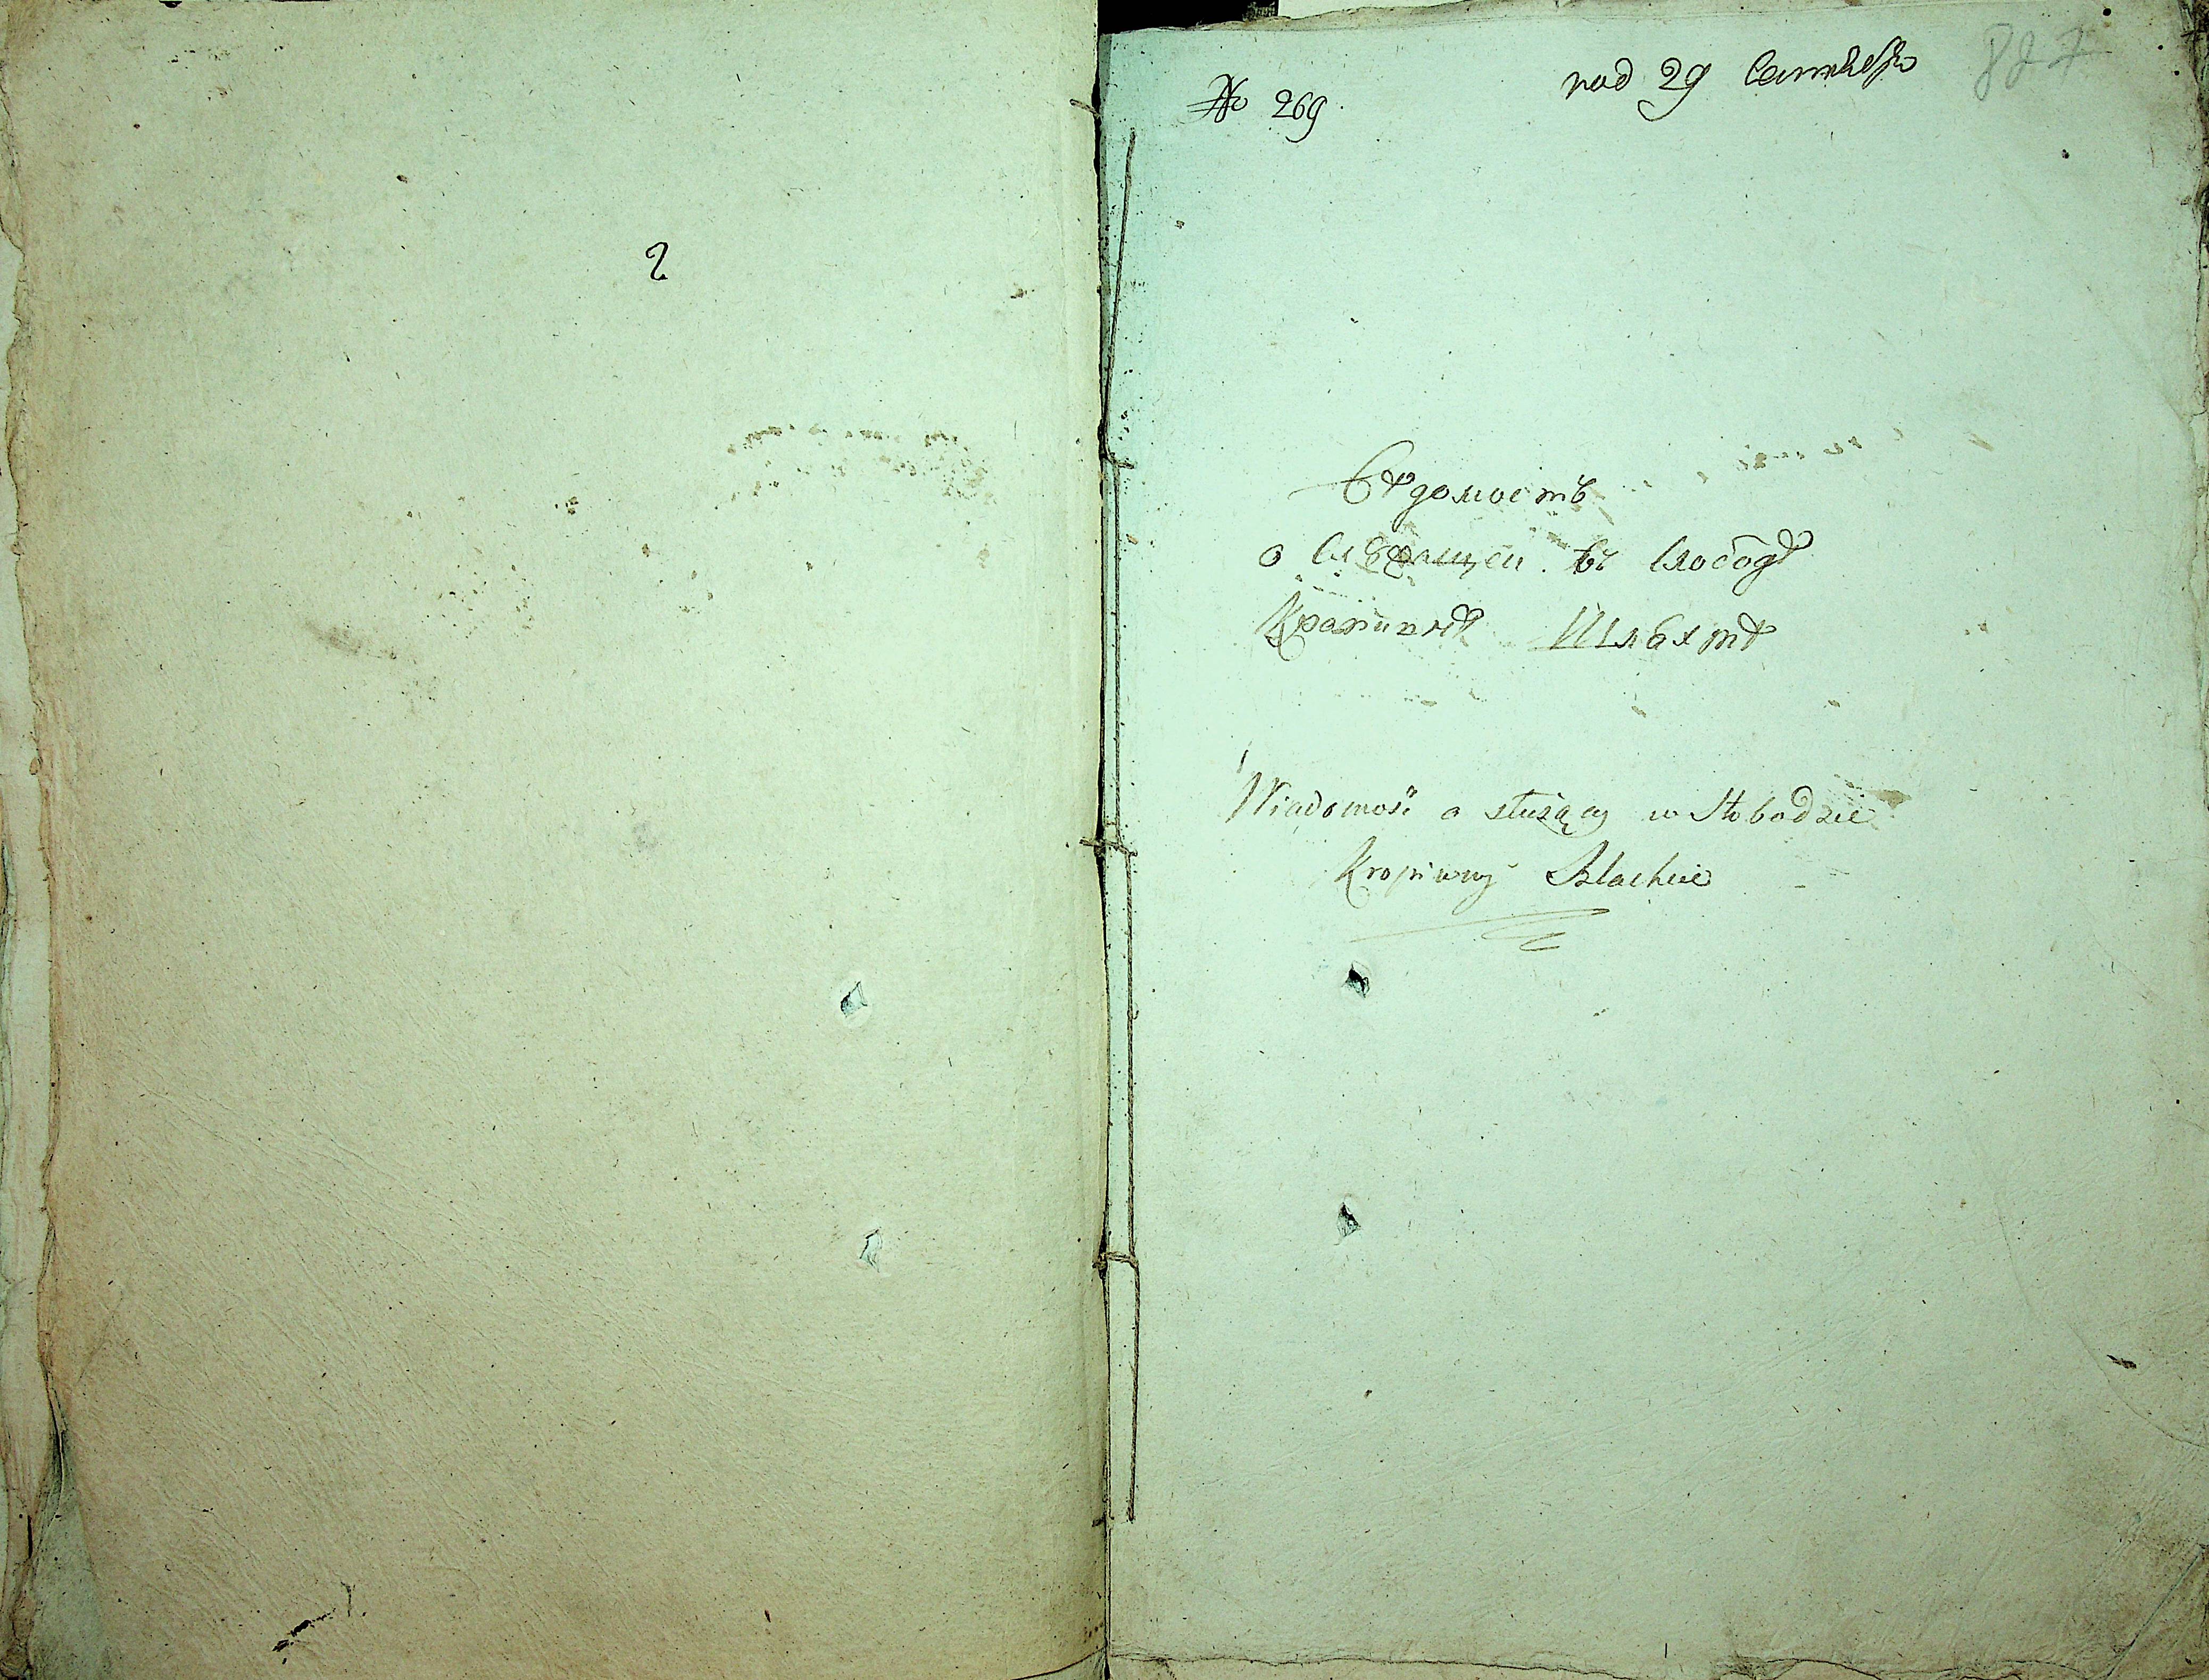 2
№ 269
под 29 Сентября
887
Ведомость
о служащей въ слободѣ
Крапивнѣ Шляхтѣ
Wiadomość o służący w Słobodzie
Kropiwny Szlachcie